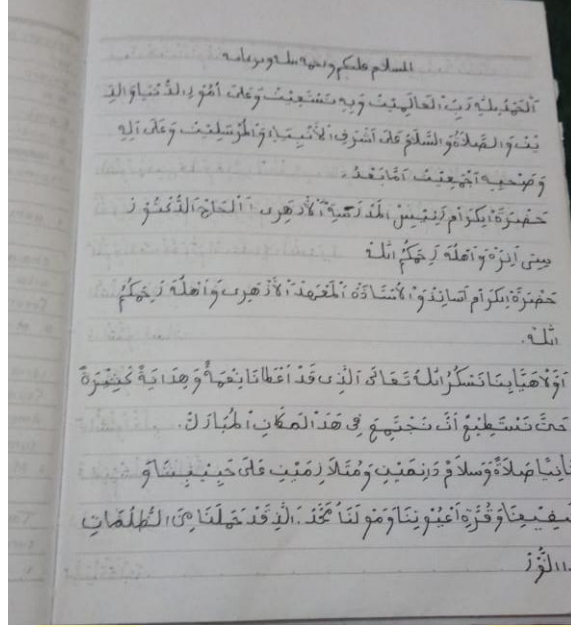 السلام عليكم ورحمة الله وبركاته
اَلْحَمْدُ لِلّٰهِ رَبِّ الْعَالَمِيْنَ وَبِهِ نَسْتَعِيْنُ وَعَلَى أُمُوْرِ الدُّنْيَا وَالدِّ
يْنِ وَالصَّلَاةُ وَالسَّلَامُ عَلَى أَشْرَفِ الْأَنْبِيَاءِ وَالْمُرْسَلِيْنَ وَعَلَى آلِهِ
وَصَحْبِهِ أَجْمَعِيْنَ أَمَّا بَعْدُ.
حَضْرَةْ اِكْرَام رَئِيْسْ الْمَدْرَسَةِ الْأَزْهَرِى اَلْحَاج الدُّكْتُوْرْ
سِيتى اَيزَةْ وَأَهْلُهُ رَحِمَكُمُ اللهْ
حَضْرَةْ اِكْرَام أَسَاتِذْ وَ الْأُسْتَاذَةْ اَلْمَعْهَدْ اَلْأَزْهَرِى وَأَهْلُهُ رَحِمَكُمُ
اللهْ.
اَوَّلًا هَيَّا بِنَا نَسْكُرُ اللهَ تَعَالَى الَّذِى قَدْ أَعْطَانَا نِعْمَةً وَهِدَايَةً كَثِيْرَةً
حَتَّى نَسْتَطِيْعُ أَنْ نَجْتَمِعَ فِى هَذَ الْمَكَانِ الْمُبَارَكْ.
ثَانِيًا صَلَاةً وَسَلَامً دَائِمَيْنِ وَمُتَلَازِمَيْنِ عَلَى حَبِيْبِنَا وَ
شَفِيْعِنَا وَقُرَّةِ أَعْيُوْنِنَا وَمَوْلَنَا مُحَمَّدْ. الَّذِ قَدْ حَمَلَنَا مِنَ الظُّلُمَاتِ
النُّوْرْ